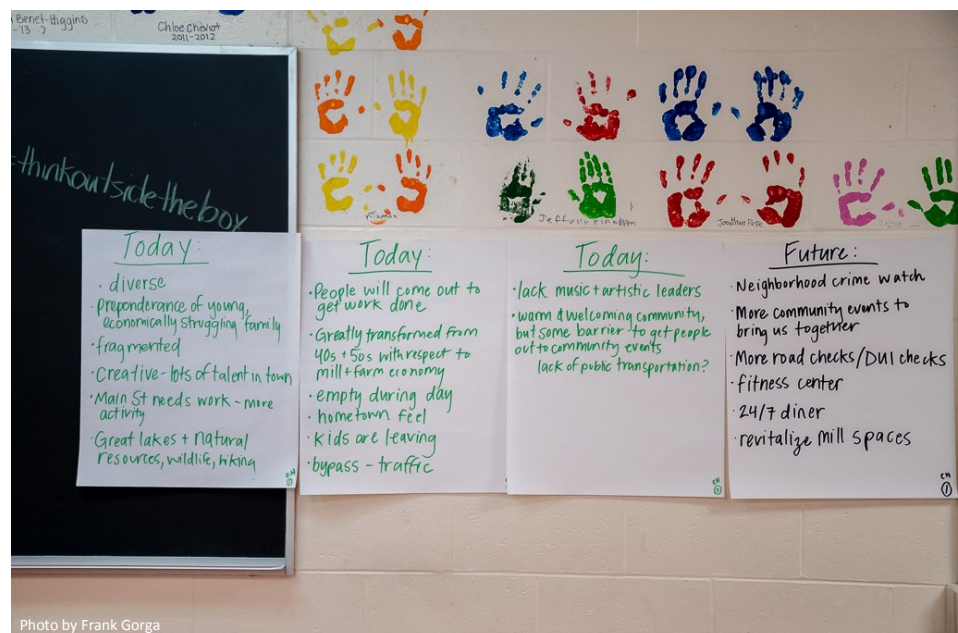 Benet-Higgins
-13 )
Chloe Cheviot
2011-2012
#thinkoutsidethebox
Jonathan
Today:
· diverse
· Preponderance of young,
economically struggling family
· fragmented
· Creative - lots of talent in town
· Main St needs work - more
activity
· Great lakes + natural
resources, wildlife, hiking
CM
1
Today:
· People will come out to
get work done
· Greatly transformed from
40s + 50s with respect to
mill + farm economy
· empty during day
· hometown feel
· kids are leaving
· bypass - traffic
Today:
· lack music + artistic leaders
· warm & welcoming community,
but some barrier to get people
out to community events
lack of public transportation?
CM
Future:
· Neighborhood crime watch
· More community events to
bring us together
· More road checks/DUI checks
· fitness center
· 24/7 diner
· revitalize mill spaces
CM
1
Photo by Frank Gorga